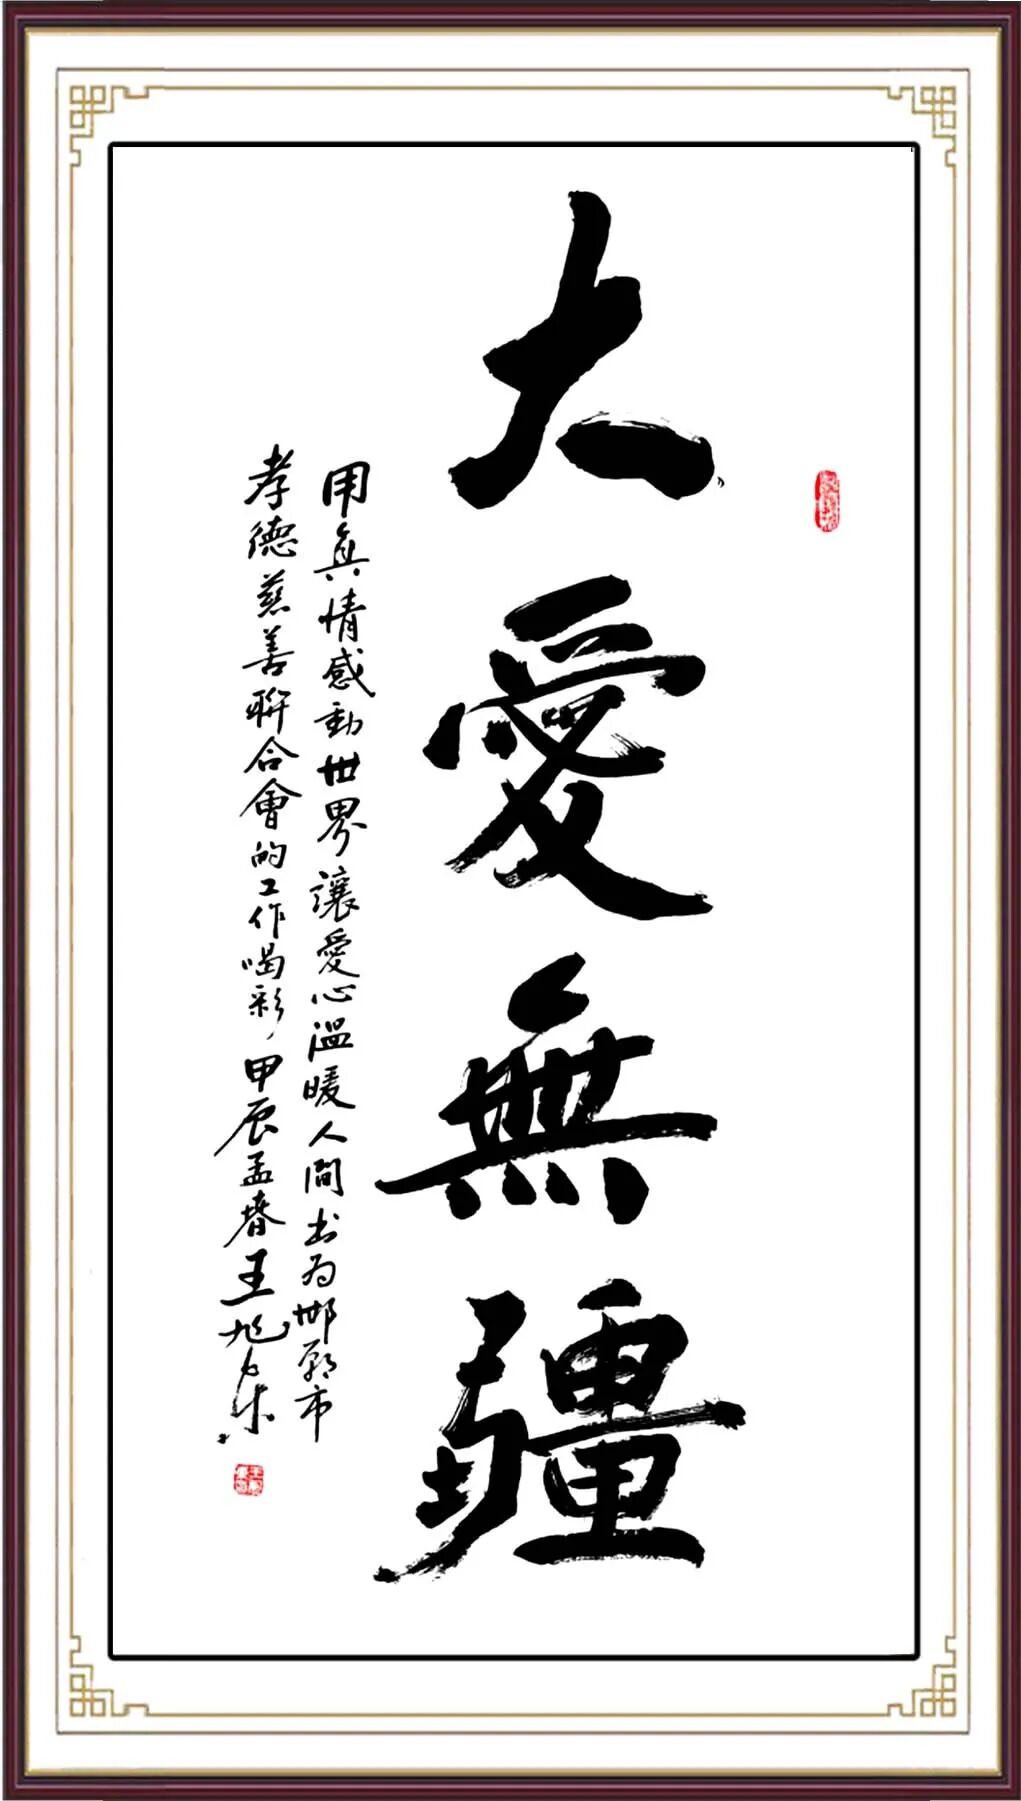 大愛無疆
用真情感動世界讓愛心溫暖人間书为邯鄲市
孝德慈善聯合會的工作喝彩甲辰孟春王旭东